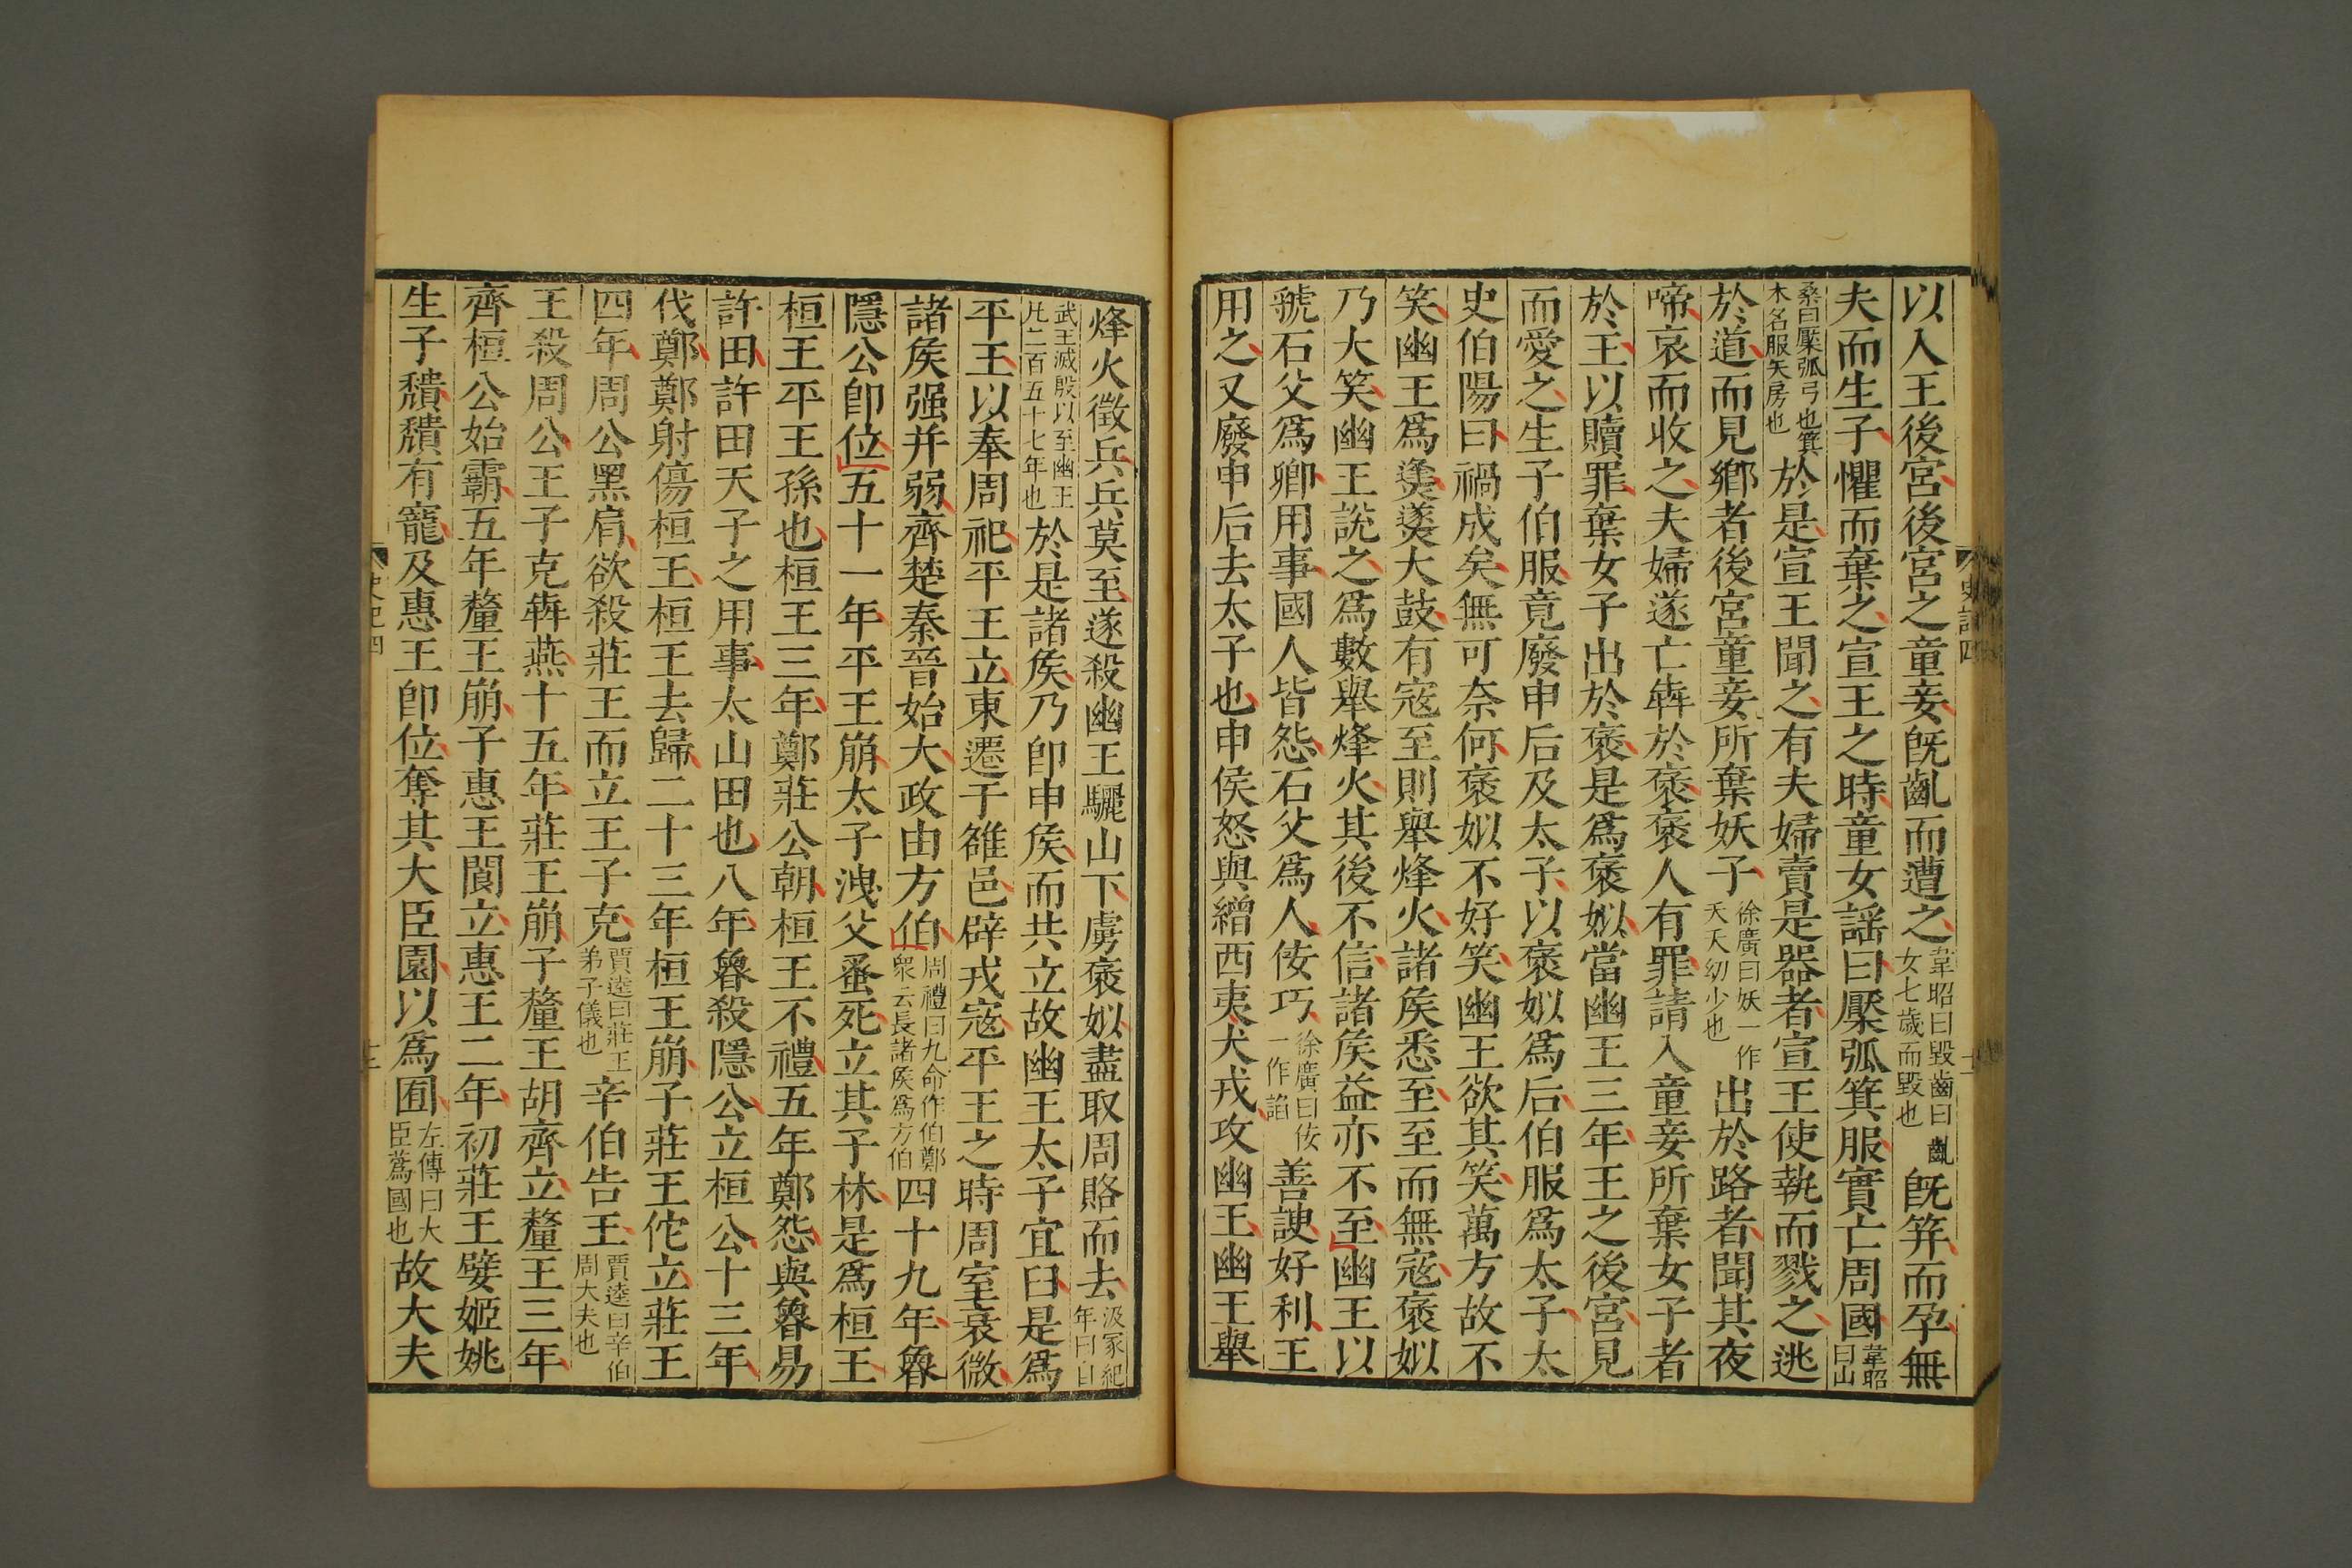 以入王後宮後宮之童妾旣齔而遭之韋昭曰毀齒曰齔女七歳而毀也旣筓而孕無
夫而生子懼而棄之宣王之時童女謡曰檿弧箕服實亡周國韋昭曰山
桑曰檿弧弓也箕木名服矢房也於是宣王聞之有夫婦賣是器者宣王使執而戮之逃
於道而見鄉者後宮童妾所棄妖子徐廣曰妖一作夭夭幼少也出於路者聞其夜
啼哀而收之夫婦遂亡犇於褒褒人有罪請入童妾所棄女子者
於王以贖罪棄女子出於褒是爲褒姒當幽王三年王之後宮見
而愛之生子伯服竟廢申后及太子以褒姒爲后伯服爲太子太
史伯陽曰禍成矣無可奈何褒姒不好笑幽王欲其笑萬方故不
笑幽王爲㷭燧大鼓有寇至則舉烽火諸矦悉至至而無寇褒姒
乃大笑幽王說之爲數舉烽火其後不信諸矦益亦不至幽王以
虢石父爲卿用事國人皆怨石父爲人佞巧徐廣曰佞一作諂善諛好利王
用之又廢申后去太子也申侯怒與繒西夷犬戎攻幽王幽王舉
史記四
烽火徵兵兵莫至遂殺幽王驪山下虜褒姒盡取周賂而去汲冢紀年曰自
武王滅殷以至幽王凡二百五十七年也於是諸矦乃卽申矦而共立故幽王太子宜臼是爲
平王以奉周祀平王立東遷于雒邑辟戎寇平王之時周室衰微
諸矦强并弱齊楚秦晉始大政由方伯周禮曰九命作伯鄭衆云長諸矦爲方伯四十九年魯
隱公卽位五十一年平王崩太子洩父蚤死立其子林是爲桓王
桓王平王孫也桓王三年鄭莊公朝桓王不禮五年鄭怨與魯易
許田許田天子之用事太山田也八年魯殺隱公立桓公十三年
伐鄭鄭射傷桓王桓王去歸二十三年桓王崩子莊王佗立莊王
四年周公黑肩欲殺莊王而立王子克賈逵曰莊王弟子儀也辛伯告王賈逵曰辛伯周大夫也
王殺周公王子克犇燕十五年莊王崩子釐王胡齊立釐王三年
齊桓公始霸五年釐王崩子惠王閬立惠王二年初莊王嬖姬姚
生子穨穨有寵及惠王卽位奪其大臣園以爲囿左傳曰大臣蒍國也故大夫
史記四